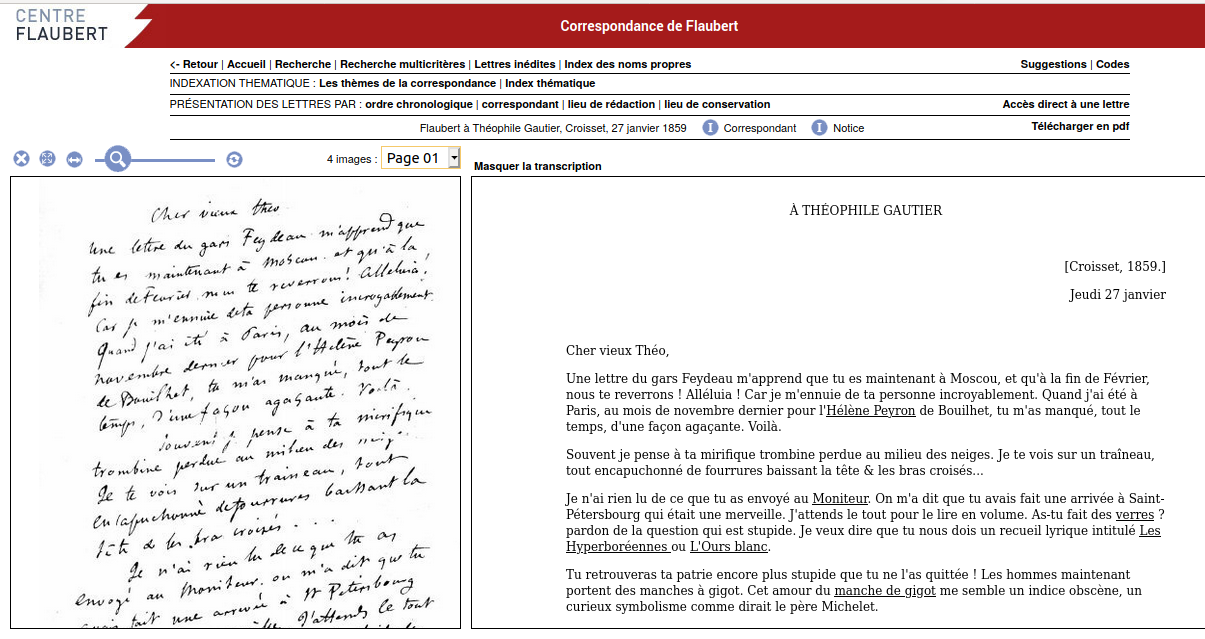 CENTRE
FLAUBERT
Correspondance de Flaubert
<- Retour | Accueil | Recherche | Recherche multicritères | Lettres inédites | Index des noms propres
Suggestions | Codes
INDEXATION THEMATIQUE : Les thèmes de la correspondance | Index thématique
PRÉSENTATION DES LETTRES PAR : ordre chronologique | correspondant | lieu de rédaction | lieu de conservation
Accès direct à une lettre
Flaubert à Théophile Gautier, Croisset, 27 janvier 1859 I Correspondant I Notice
Télécharger en pdf
4 images : Page 01
Masquer la transcription
Cher vieux théo
Une lettre du gars Feydeau m'apprend que
tu es maintenant à Moscou. et qu'à la
fin de Fevrier, nous te reverrons! Alleluia!
Car je m'ennuie de ta personne incroyablement.
Quand j'ai été à Paris, au mois de
novembre dernier pour l'Helène Peyron
de Bouilhet, tu m'as manqué, tout le
temps, d'une façon agaçante. Voilà.
Souvent je pense à ta mirifique
trombine perdue au milieu des neiges.
Je te vois sur un traineau, tout
encapuchonné de fourrures baissant la
tête & les bras croisés...
Je n'ai rien lu de ce que tu as
envoyé au Moniteur. on m'a dit que tu
avais fait une arrivée à St Petersbourg
J'attends le tout
À THÉOPHILE GAUTIER
[Croisset, 1859.]
Jeudi 27 janvier
Cher vieux Théo,
Une lettre du gars Feydeau m'apprend que tu es maintenant à Moscou, et qu'à la fin de Février,
nous te reverrons ! Alléluia ! Car je m'ennuie de ta personne incroyablement. Quand j'ai été à
Paris, au mois de novembre dernier pour l'Hélène Peyron de Bouilhet, tu m'as manqué, tout le
temps, d'une façon agaçante. Voilà.
Souvent je pense à ta mirifique trombine perdue au milieu des neiges. Je te vois sur un traîneau,
tout encapuchonné de fourrures baissant la tête & les bras croisés...
Je n'ai rien lu de ce que tu as envoyé au Moniteur. On m'a dit que tu avais fait une arrivée à Saint-
Pétersbourg qui était une merveille. J'attends le tout pour le lire en volume. As-tu fait des verres ?
pardon de la question qui est stupide. Je veux dire que tu nous dois un recueil lyrique intitulé Les
Hyperboréennes ou L'Ours blanc.
Tu retrouveras ta patrie encore plus stupide que tu ne l'as quittée ! Les hommes maintenant
portent des manches à gigot. Cet amour du manche de gigot me semble un indice obscène, un
curieux symbolisme comme dirait le père Michelet.